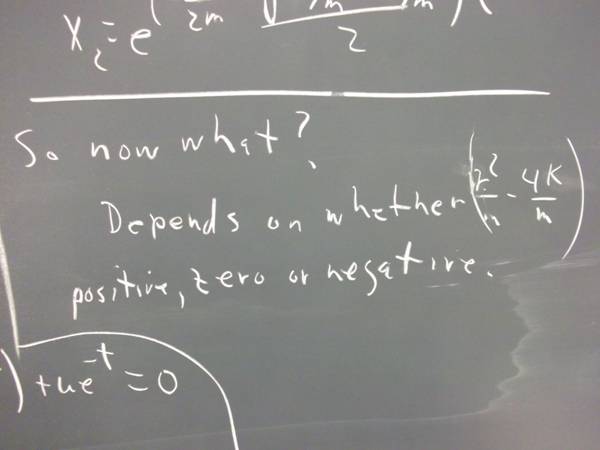 X₂ = e
2m
m
m
2
t
So now what?
Depends on whether ( r²/m - 4K/m )
positive, zero or negative.
) + ue^-t = 0